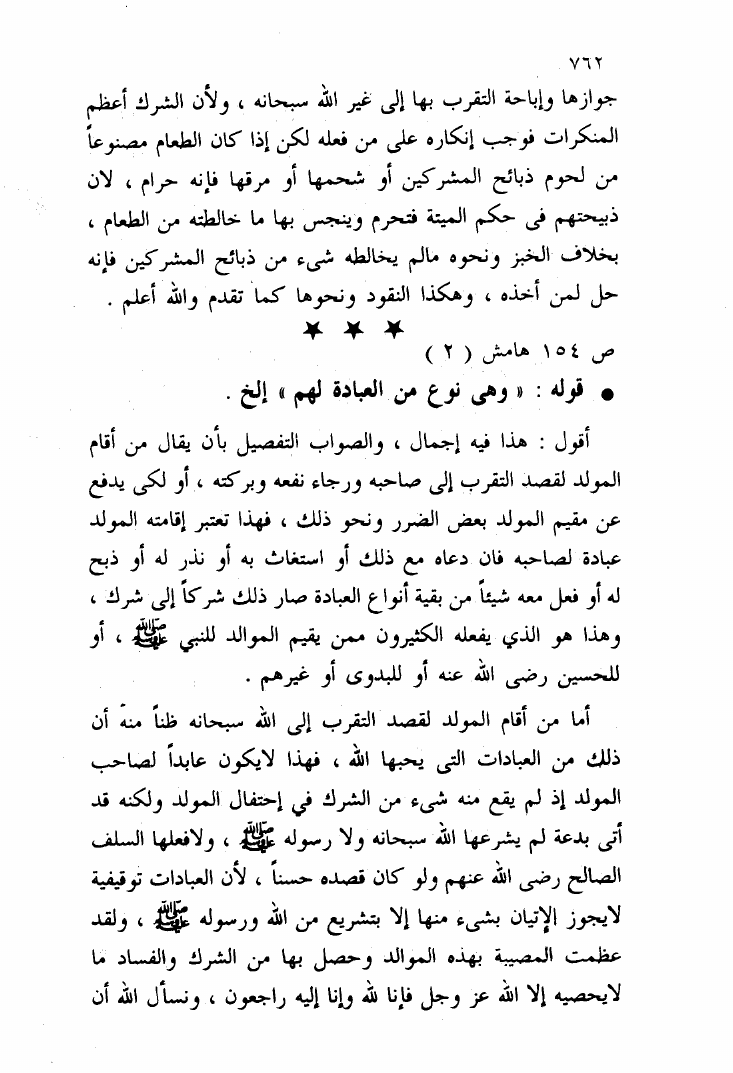 ٧٦٢
جوازها وإباحة التقرب بها إلى غير الله سبحانه ، ولأن الشرك أعظم
المنكرات فوجب إنكاره على من فعله لكن إذا كان الطعام مصنوعاً
من لحوم ذبائح المشركين أو شحمها أو مرقها فإنه حرام ، لان
ذبيحتهم فى حكم الميتة فتحرم وينجس بها ما خالطته من الطعام ،
بخلاف الخبز ونحوه مالم يخالطه شىء من ذبائح المشركين فإنه
حل لمن أخذه ، وهكذا النقود ونحوها كما تقدم والله أعلم .
★ ★ ★
ص ١٥٤ هامش ( ٢ )
● قوله : « وهى نوع من العبادة لهم » إلخ .
أقول : هذا فيه إجمال ، والصواب التفصيل بأن يقال من أقام
المولد لقصد التقرب إلى صاحبه ورجاء نفعه وبركته ، أو لكى يدفع
عن مقيم المولد بعض الضرر ونحو ذلك ، فهذا تعتبر إقامته المولد
عبادة لصاحبه فان دعاه مع ذلك أو استغاث به أو نذر له أو ذبح
له أو فعل معه شيئاً من بقية أنواع العبادة صار ذلك شركاً إلى شرك ،
وهذا هو الذي يفعله الكثيرون ممن يقيم الموالد للنبي ﷺ ، أو
للحسين رضى الله عنه أو للبدوى أو غيرهم .
أما من أقام المولد لقصد التقرب إلى الله سبحانه ظناً منه أن
ذلك من العبادات التى يحبها الله ، فهذا لايكون عابداً لصاحب
المولد إذ لم يقع منه شىء من الشرك في إحتفال المولد ولكنه قد
أتى بدعة لم يشرعها الله سبحانه ولا رسوله ﷺ ، ولافعلها السلف
الصالح رضى الله عنهم ولو كان قصده حسناً ، لأن العبادات توقيفية
لايجوز الإتيان بشىء منها إلا بتشريع من الله ورسوله ﷺ ، ولقد
عظمت المصيبة بهذه الموالد وحصل بها من الشرك والفساد ما
لايحصيه إلا الله عز وجل فإنا لله وإنا إليه راجعون ، ونسأل الله أن